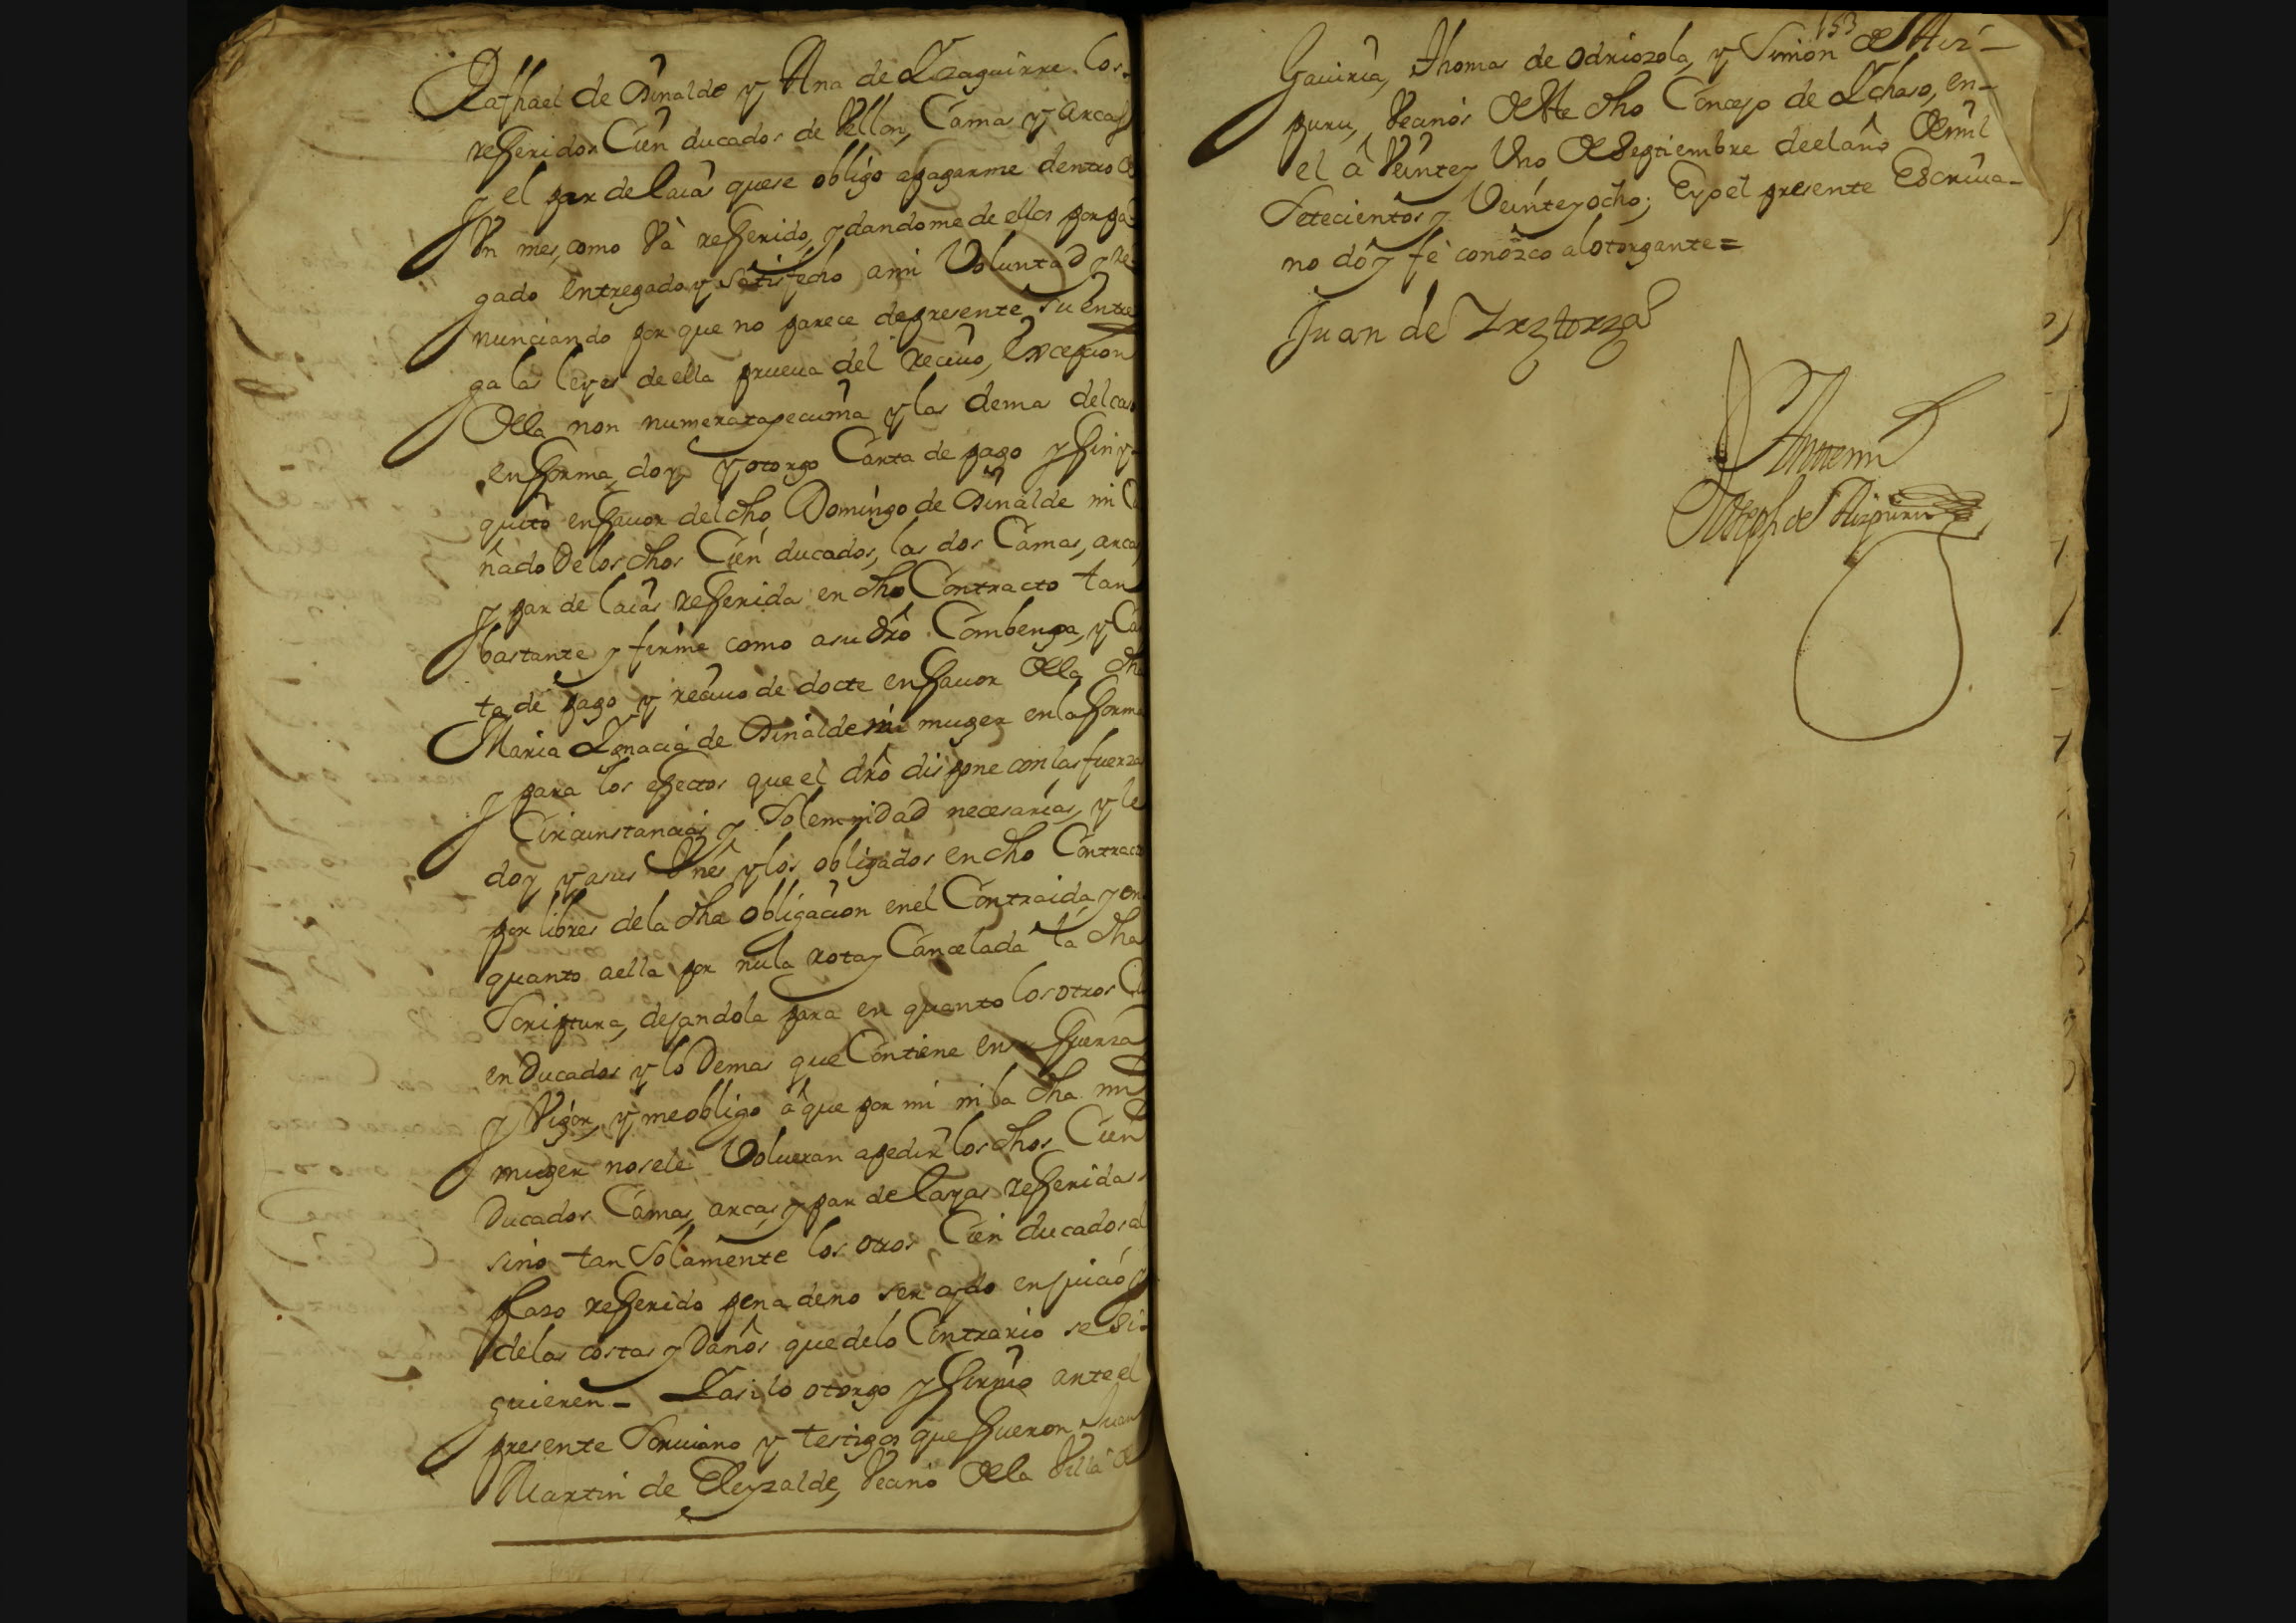 Raphael de Dinalde y Ana de Yzaguirre los
referidos Cien ducados de Vellon, Camas y arcas
y el par de laias que se obligo a pagarme dentro de
Vn mes, como Và referido, y dandome de ellos por pa
gado entregado y satisfecho a mi Voluntad y re
nunciando por que no parece de presente su entre
ga las leyes de ella prueua del reciuo, excepcion
de la non numerata pecunia y las demas del caso
en forma, doy y otorgo Carta de pago y fini y
quito en fauor del dho Domingo de Dinalde mi Cu
ñado De los dhos Cien ducados, las dos Camas, arcas
y par de laias referida en dho Contracto tan
bastante y firme como a su dro Combenga, y Car
ta de pago y reciuo de docte en fauor de la dha
Maria Ygnacia de Dinalde mi muger en la forma
y para los efectos que el dro dispone con las fuerzas
Circunstancias y Solemnidad necesarias, y le
doy y a sus Vnes y los obligados en dho Contracto
por libres de la dha obligacion en el Contraida, y en
quanto a ella por nula rota y Cancelada la dha
Scriptura, dejandola para en quanto los otros Ci
en Ducados y lo Demas que Contiene en su fuerza
y Vigor, y me obligo à que por mi ni la dha mi
muger no se le Volueran a pedir los dhos Cien
Ducados Camas, arcas, y par de layas referidas
sino tan Solamente los otros Cien ducados al
plazo referido pena de no ser oydo en juicio y
de las costas y Daños que de lo Contrario se si
guieren _ Y asi lo otorgo y firmo ante el
presente Scriuano y testigos que fueron Juan
Martin de Eleyzalde, Vecino de la Villa de
153
Gauiria, Thomas de Odriozola, y Simon de Aiz_
puru, Vecinos de Ste dho Concejo de Ychaso, en_
el à Veinte y Vno de Septiembre de el año de mil
Setecientos y Veinte y ocho; E yo el presente Escriua_
no doy fè conozco al otorgante =
Juan de
Ante mi
Joseph de Aizpuru